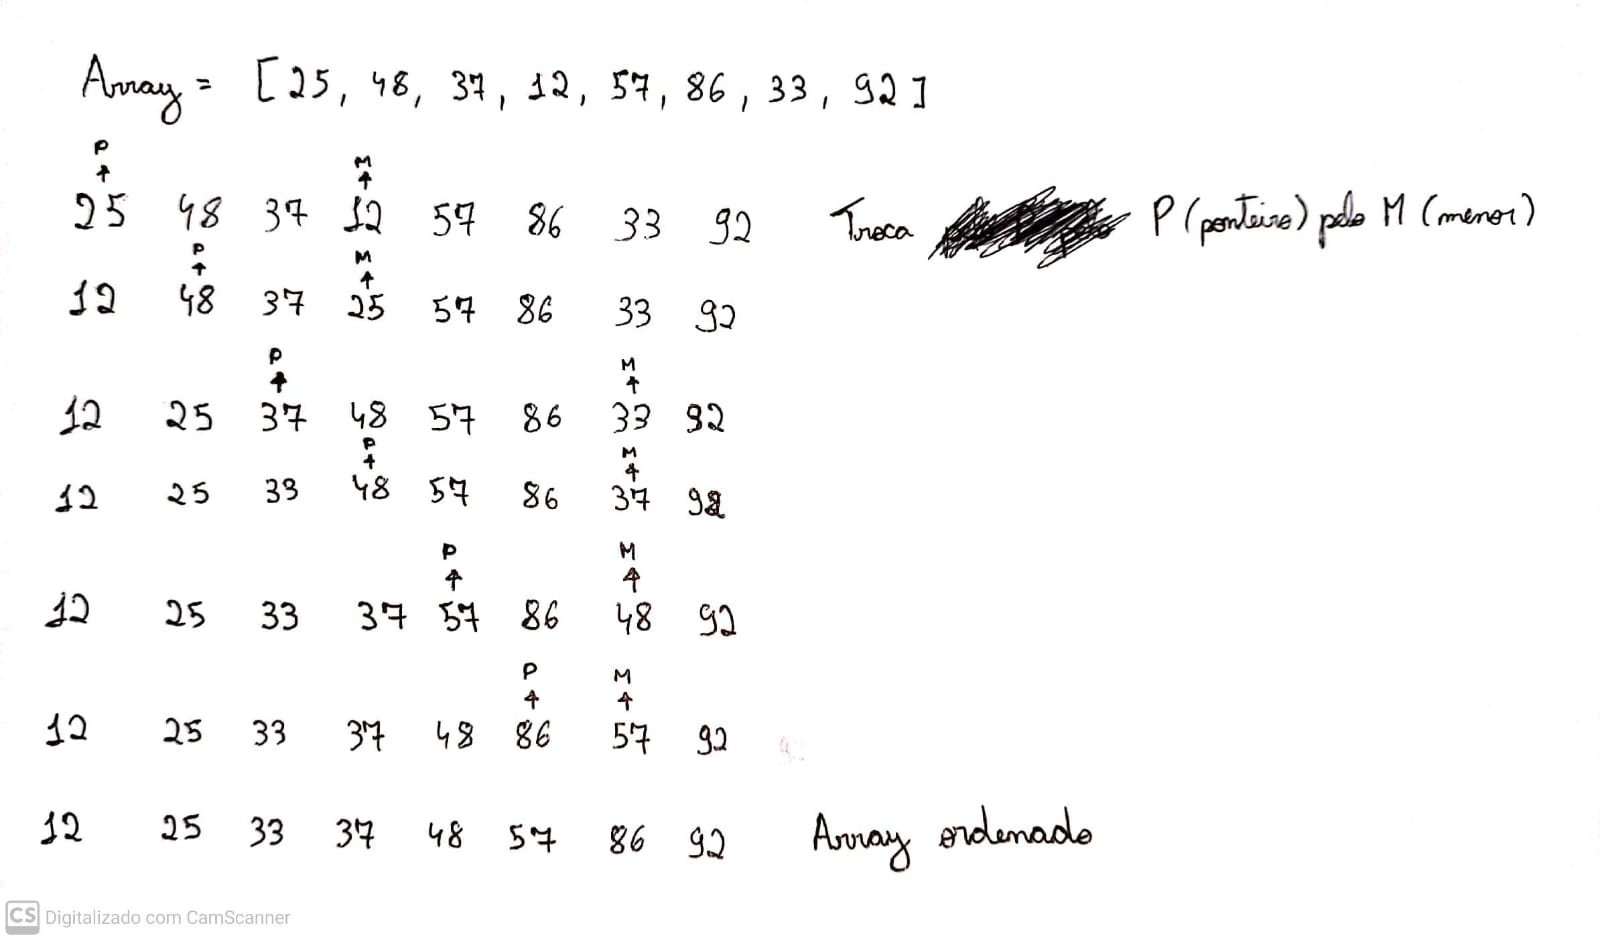 Array = [25, 48, 37, 12, 57, 86, 33, 92]
P M
25 48 37 12 57 86 33 92 Troca P (ponteiro) pelo M (menor)
P M
12 48 37 25 57 86 33 92
P M
12 25 37 48 57 86 33 92
P M
12 25 33 48 57 86 37 92
P M
12 25 33 37 57 86 48 92
P M
12 25 33 37 48 86 57 92
12 25 33 37 48 57 86 92 Array ordenado
CS Digitalizado com CamScanner